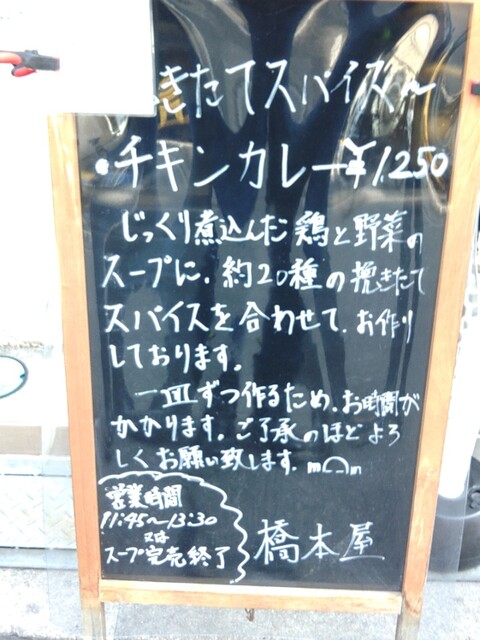 きたてスパイス〜
・チキンカレー¥1,250
じっくり煮込んだ鶏と野菜の
スープに、約20種の挽きたて
スパイスを合わせて、お作り
しております。
一皿ずつ作るため、お時間が
かかります。ご了承のほどよろ
しくお願い致します。m⌒m
営業時間
11:45〜13:30
又は
スープ完売終了
橋本屋